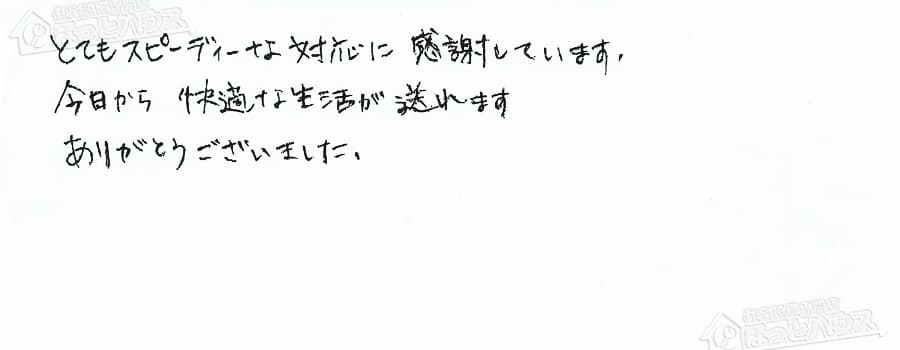 住宅設備専門店
ほっとハウス
とてもスピーディーな対応に 感謝しています.
今日から 快適な生活が 送れます
ありがとうございました.
住宅設備専門店
ほっとハウス